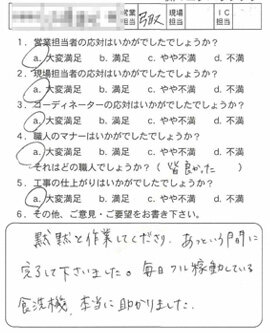 営業担当 現場担当 IC担当
1．営業担当者の応対はいかがでしたでしょうか？
a. 大変満足 b. 満足 c. やや不満 d. 不満
2．現場担当者の応対はいかがでしたでしょうか？
a. 大変満足 b. 満足 c. やや不満 d. 不満
3．コーディネーターの応対はいかがでしたでしょうか？
a. 大変満足 b. 満足 c. やや不満 d. 不満
4．職人のマナーはいかがでしたでしょうか？
a. 大変満足 b. 満足 c. やや不満 d. 不満
それはどの職人でしょうか？（ 皆良かった ）
5．工事の仕上がりはいかがでしたでしょうか？
a. 大変満足 b. 満足 c. やや不満 d. 不満
6．その他、ご意見・ご要望をお書き下さい。
黙黙と作業してくださり、あっという間に
完了して下さいました。毎日フル稼動している
食洗機、本当に助かりました。